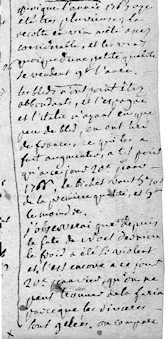 quoique l'année 
été très pluvieuse, la
récolte en vin a été assez
considérable, et les vins
quoique d'une petite qualité
se vendent 9# l'anée.
les bleds n'ont point été
abbondants, et l'espagne
et l'italie n'ayant eu que
peu de bled, on ont tiré
de france, ce qui les a
fait augmenter, à tel point
qu'à ce jour 20e janvier
le bichet
de la première qualité, et
le moindre.
j'observerai que depuis
la fête de noel dernière
le froid a été si violent
et l'est encore à ce jour
20e janvier, qu'on ne
peut trouver de la farine
parce que les rivières
sont gelées. on compare